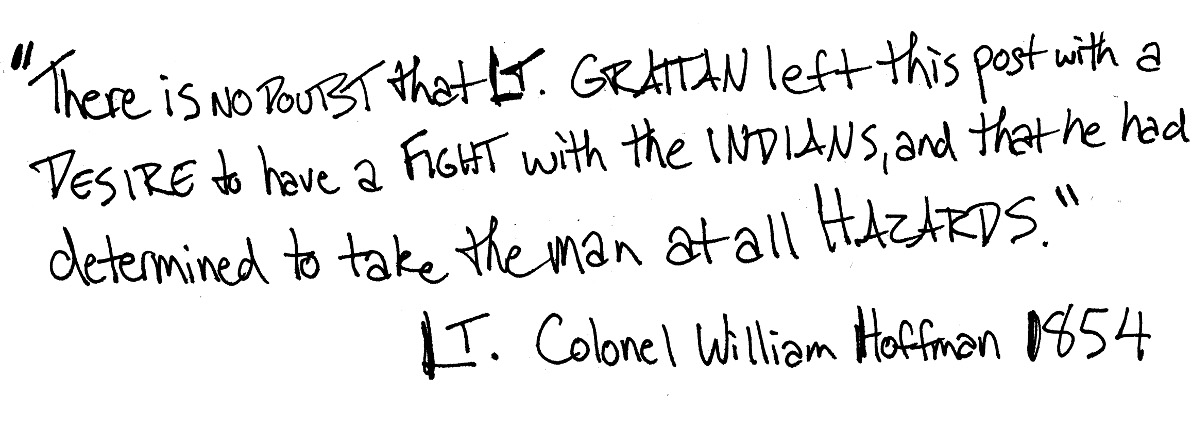 "There is NO DOUBT that LT. GRATTAN left this post with a
DESIRE to have a FIGHT with the INDIANS, and that he had
determined to take the man at all HAZARDS."
LT. Colonel William Hoffman 1854